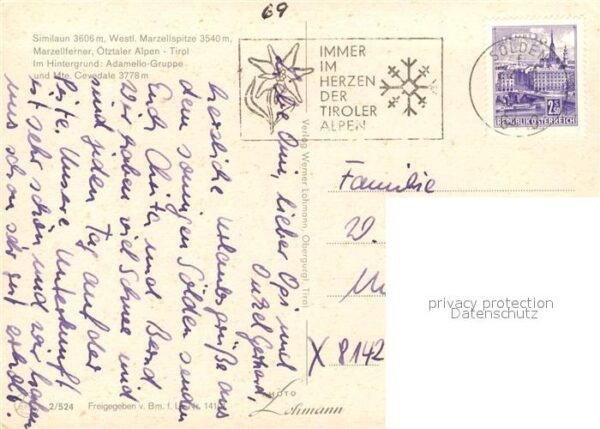 69
Similaun 3606 m, Westl. Marzellspitze 3540 m,
Marzellferner, Ötztaler Alpen - Tirol
Im Hintergrund: Adamello-Gruppe
und Mte. Cevedale 3778 m
IMMER
IM
HERZEN
DER
TIROLER
ALPEN
SÖLDEN
2.50
REPUBLIK ÖSTERREICH
Liebe Omi, lieber Opi und
Onkel Gerhard,
herzliche Urlaubsgrüße aus
dem sonnigen Sölden senden
Euch Christa und Bernd
Wir haben viel Schnee und
sind jeden Tag auf der
Piste. Unsere Unterkunft
ist sehr schön und wir haben
uns schon sehr gut erholt.
Verlag Werner Lohmann, Obergurgl, Tirol
Familie
W.
X 8142
privacy protection
Datenschutz
2/524
Freigegeben v. Bm. f. L.
PHOTO
Lohmann